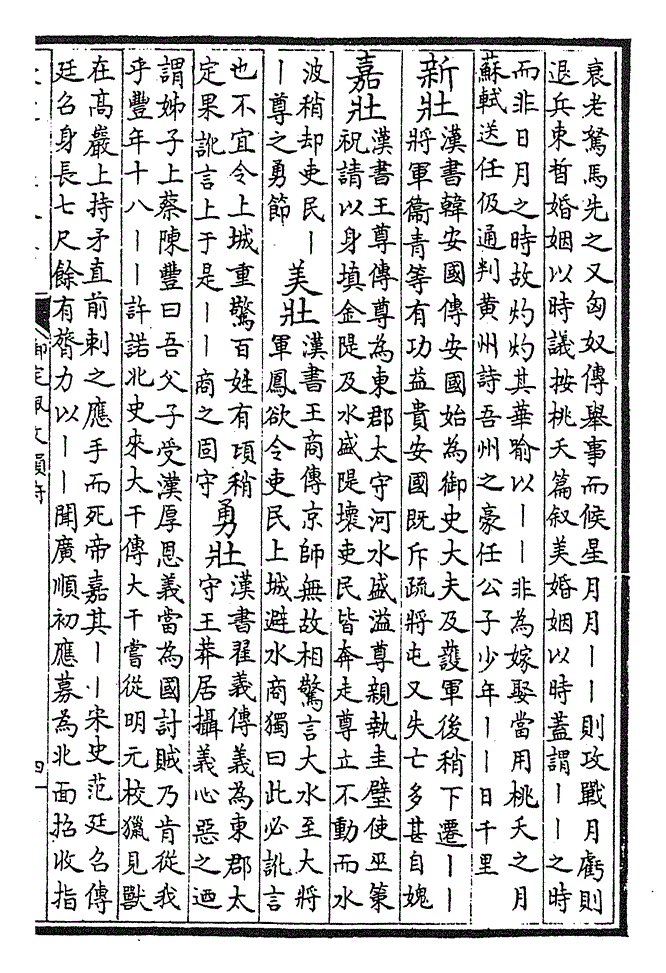 衰老駑馬先之又匈奴傳舉事而候星月月丨丨則攻戰月虧則
退兵束晳婚姻以時議按桃夭篇叙美婚姻以時蓋謂丨丨之時
而非日月之時故灼灼其華喻以丨丨非為嫁娶當用桃夭之月
蘇軾送任伋通判黄州詩吾州之豪任公子少年丨丨日千里
新壯
漢書韓安國傳安國始為御史大夫及䕶軍後稍下遷丨丨
將軍衞青等有功益貴安國既斥疏將屯又失亡多甚自媿
嘉壯
漢書王尊傳尊為東郡太守河水盛溢尊親執圭璧使巫策
祝請以身填金隄及水盛隄壞吏民皆奔走尊立不動而水
波稍却吏民丨
丨尊之勇節
美壯
漢書王商傳京師無故相驚言大水至大將
軍鳳欲令吏民上城避水商獨曰此必訛言
也不宜令上城重驚百姓有項稍
定果訛言上于是丨丨商之固守
勇壯
漢書翟義傳義為東郡太
守王莽居攝義心惡之迺
謂姊子上蔡陳豐曰吾父子受漢厚恩義當為國討賊乃肯從我
乎豐年十八丨丨許諾北史來大干傳大干嘗從明元校獵見獸
在高巖上持矛直前刺之應手而死帝嘉其丨丨宋史范廷召傳
廷召身長七尺餘有膂力以丨丨聞廣順初應募為北面招收指
御定佩文韻府
四